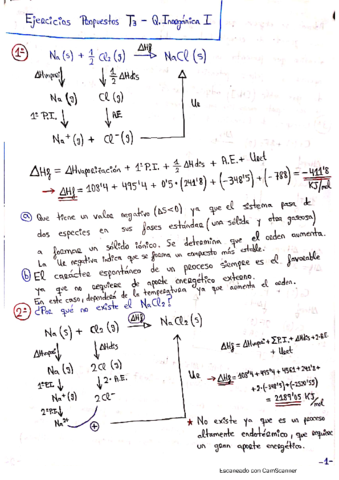 Ejercicios Propuestos T3 - Q. Inorgánica I
1º
Na(s) + 1/2 Cl2(g) ΔHf → NaCl(s)
ΔHvapori ↓ ↓ 1/2 ΔHdis
Na(g) Cl(g)
1º P.I. ↓ ↓ A.E.
Na+(g) + Cl-(g)
Ue
ΔHf = ΔHvaporización + 1º P.I. + 1/2 ΔHdis + A.E. + Uect
→ ΔHf = 108'4 + 495'4 + 0'5·(241'8) + (-348'5) + (-788) = -411'8 KJ/mol
a) Que tiene un valor negativo (ΔS<0) ya que el sistema pasa de
dos especies en sus fases estándar (una sólida y otra gaseosa)
a formar un sólido iónico. Se determina que el orden aumenta.
La Ue negativa indica que se forma un compuesto más estable.
b) El carácter espontáneo de un proceso siempre es el favorable
ya que no requiere de aporte energético externo.
En este caso, dependerá de la temperatura ya que aumenta el orden.
2º ¿Por qué no existe el NaCl2?
Na(s) + Cl2(g) ΔHf → NaCl2(s)
ΔHvapori ↓ ↓ ΔHdis
Na(g) 2Cl(g)
1º P.I. ↓ ↓ 2·A.E.
Na+(g) 2Cl-
2º P.I. ↓
Na2+
+
Ue
ΔHf = ΔHvapori + ΣP.I. + ΔHdis + 2·A.E
+ Uect
→ ΔHf = 108'4 + 495'4 + 4561 + 241'8 +
= 2189'05 KJ/mol
* No existe ya que es un proceso
altamente endotérmico, que requiere
un gran aporte energético.
-1-
Escaneado con CamScanner